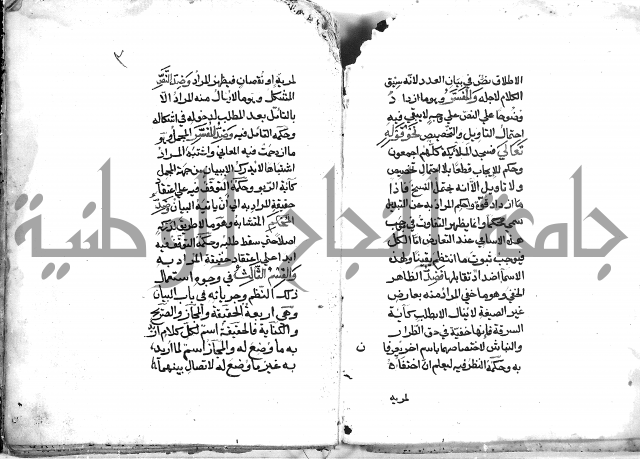 الاطلاق نص في بيان العدد لانه سيق
الكلام لاجله والمفسر وهو ما ازداد
وضوحا على النص على وجه لا يبقى فيه
احتمال التاويل والتخصيص نحو قوله
تعالى فسجد الملائكة كلهم اجمعون
وحكمه الايجاب قطعا بلا احتمال تخصيص
ولا تاويل الا انه يحتمل النسخ فاذا
ازداد قوة واحكم المراد به عن التبديل
سمي محكما وانما يظهر التفاوت في موجب
هذه الاسامي عند التعارض اما الكل
فيوجب ثبوت ما انتظمه يقينا ولهذه
الاسما اضداد تقابلها فضد الظاهر
الخفي وهو ما خفي المراد منه بعارض
غير الصيغة لا ينال الا بطلب كآية
السرقة فانها خفية في حق الطرار
والنباش لاختصاصهما باسم اخر يعرفا
ن
به وحكمه النظر فيه ليعلم ان اختفاه
لمزية
٣
لمزية او نقصان فيظهر المراد وضد النص
المشكل وهو ما لا ينال منه المراد الا
بالتامل بعد الطلب لدخوله في اشكاله
وحكمه التامل فيه وضد المفسر المجمل وهو
ما ازدحمت فيه المعاني واشتبه المراد
اشتباها لا يدرك الا ببيان من جهة المجمل
كآية الربو وحكمه التوقف فيه على اعتقاد
حقيقة المراد به الى ان ياتيه البيان وضد
المحكم المتشابه وهو ما لا طريق لدركه
اصلا حتى سقط طلبه وحكمه التوقف فيه
ابدا على اعتقاد حقيقة المراد به
والقسم الثالث في وجوه استعمال
ذلك النظم وجريانه في باب البيان
وهي اربعة الحقيقة والمجاز والصريح
والكناية فالحقيقة اسم لكل كلام اريد
به ما وضع له والمجاز اسم لما اريد
به غير ما وضع له لاتصال بينهما
جامعة النجاح الوطنية